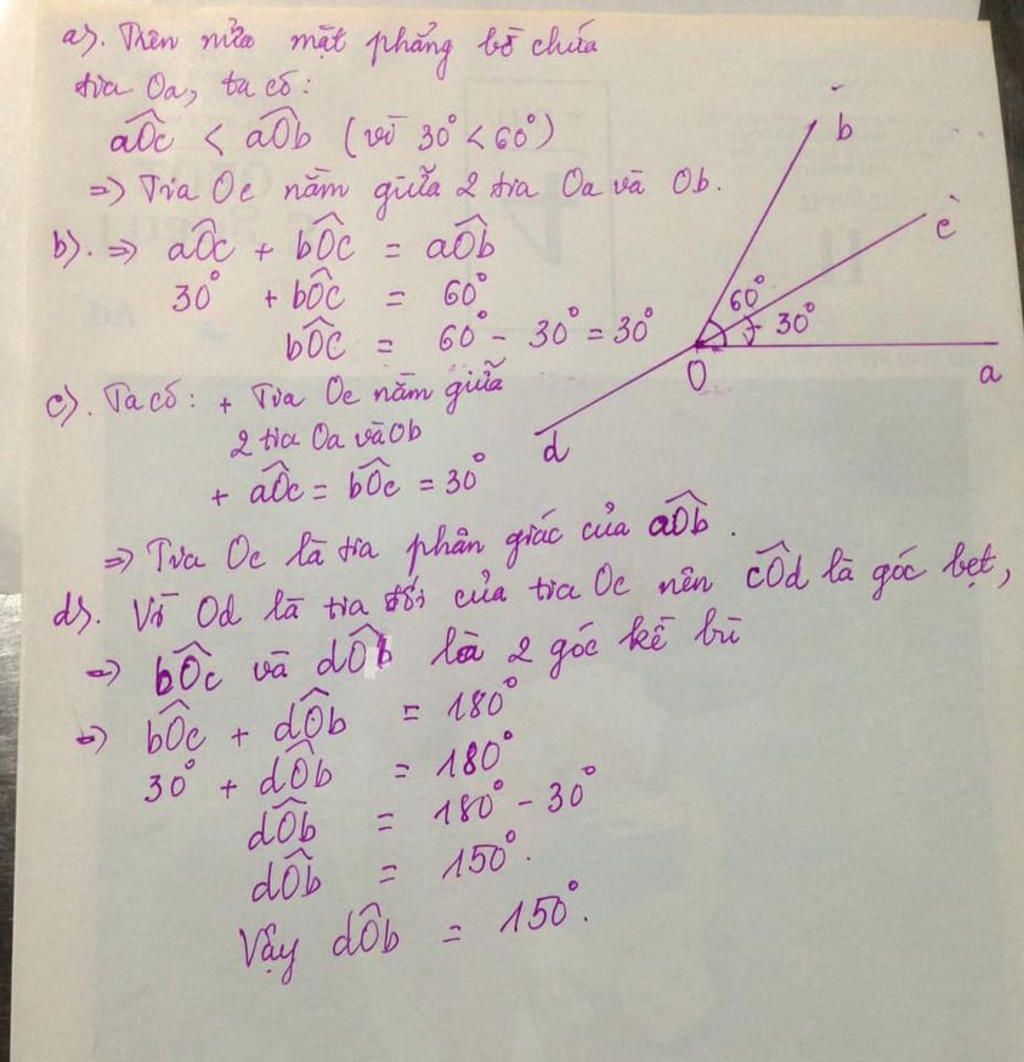 a). Trên nửa mặt phẳng bờ chứa
tia Oa, ta có:
aÔc < aÔb (vì 30° < 60°)
=> Tia Oc nằm giữa 2 tia Oa và Ob.
b). => aÔc + bÔc = aÔb
30° + bÔc = 60°
bÔc = 60° - 30° = 30°
c). Ta có: + Tia Oc nằm giữa
2 tia Oa và Ob
+ aÔc = bÔc = 30°
=> Tia Oc là tia phân giác của aÔb.
d). Vì Od là tia đối của tia Oc nên cÔd là góc bẹt,
=> bÔc và dÔb là 2 góc kề bù
=> bÔc + dÔb = 180°
30° + dÔb = 180°
dÔb = 180° - 30°
dÔb = 150°.
Vậy dÔb = 150°.
b
c
60°
30°
O
a
d